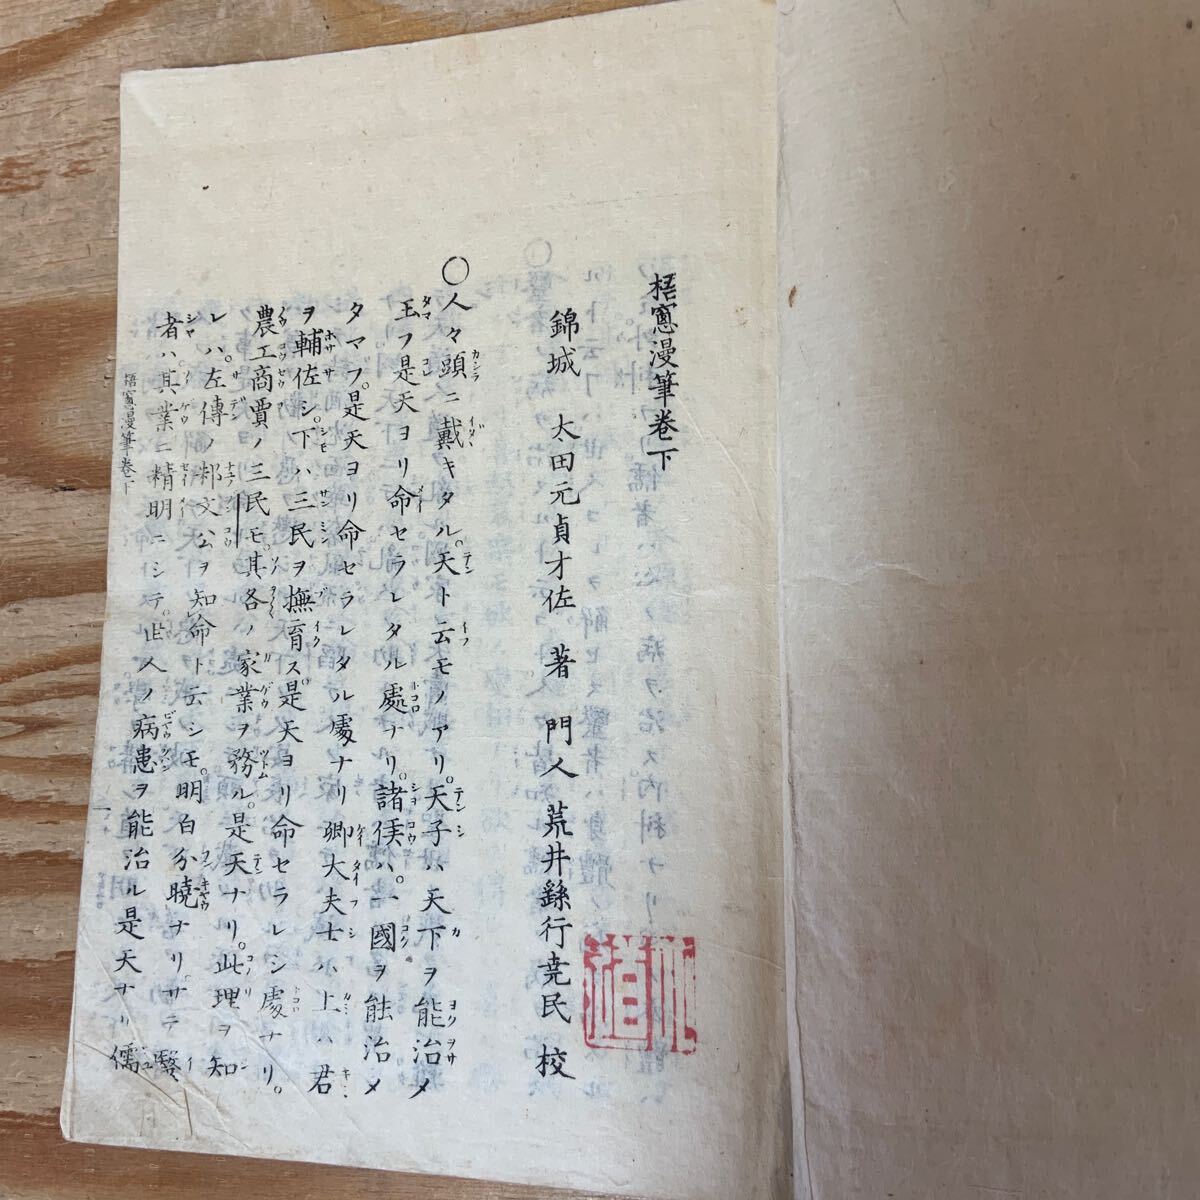 梧窻漫筆卷下
錦城 太田元貞才佐 著 門人 荒井繇行尭民 校
〇人々頭ニ戴キタル。天ト云モノアリ。天子ハ天下ヲ能治メ
玉フ是天ヨリ命セラレタル處ナリ。諸侯ハ。一國ヲ能治メ
タマフ。是天ヨリ命セラレタル處ナリ卿大夫士ハ上ハ君
ヲ輔佐シ。下ハ三民ヲ撫育ス。是天ヨリ命セラレシ處ナリ。
農工商賈ノ三民モ。其各ノ家業ヲ務ル。是天ナリ。此理ヲ知
レハ。左傳ノ邾文公ヲ知命ト云シモ。明白分曉ナリ。サテ醫
者ハ其業ニ精明ニシテ。世人ノ病患ヲ能治ル是天ナリ儒
梧窻漫筆卷下